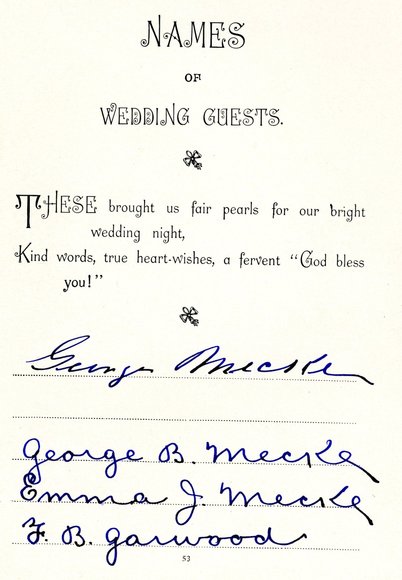 NAMES
OF
WEDDING GUESTS.
THESE brought us fair pearls for our bright
wedding night,
Kind words, true heart-wishes, a fervent "God bless
you!"
George Mecke
George B. Mecke
Emma J. Mecke
F. B. Garwood
53